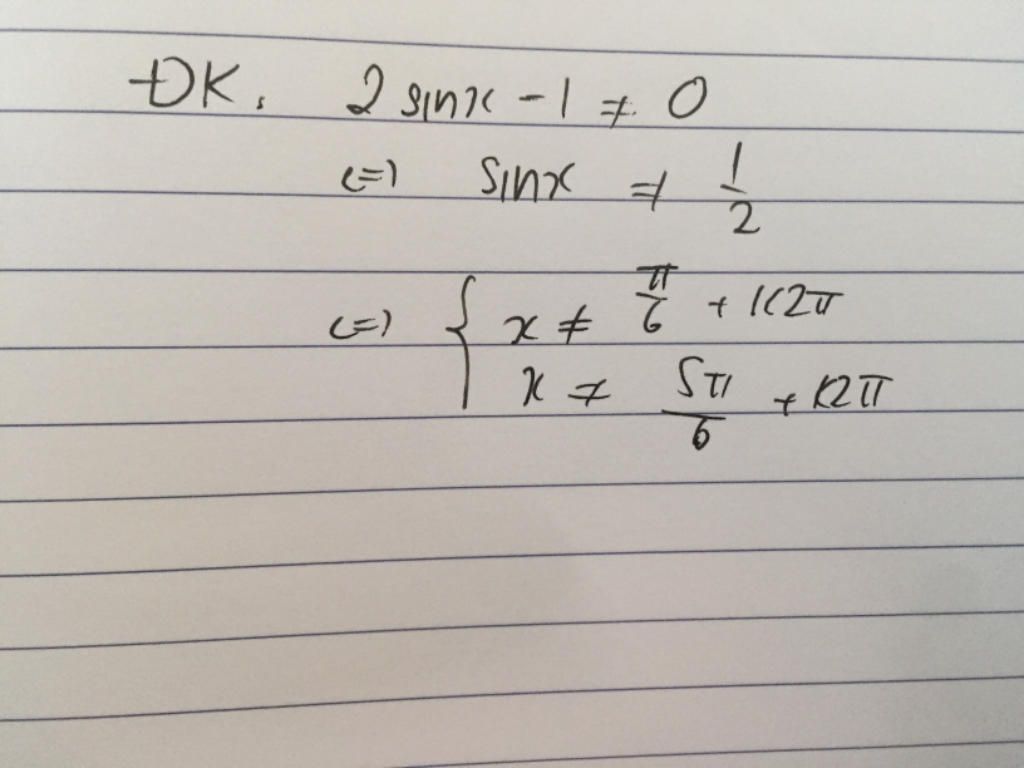 ĐK: 2 sinx - 1 ≠ 0
<=> sinx ≠ 1/2
<=> { x ≠ π/6 + k2π
x ≠ 5π/6 + k2π